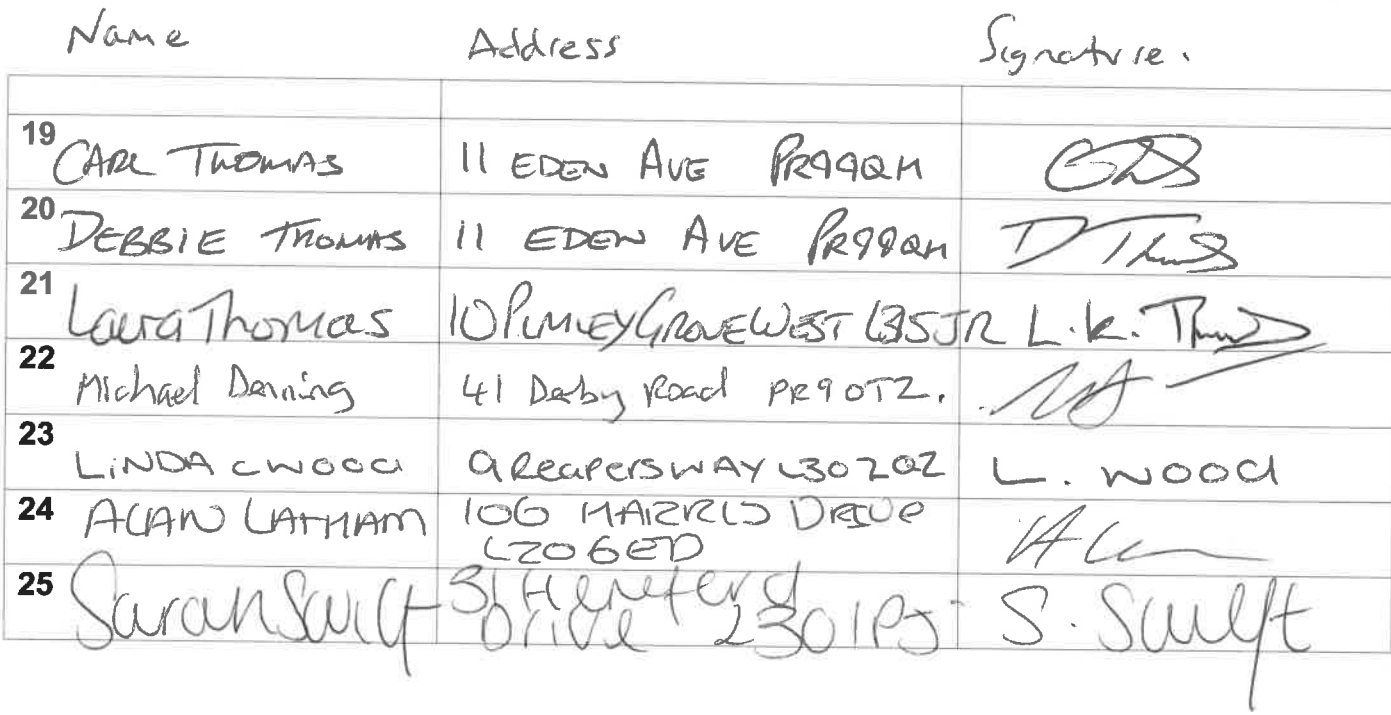 Name Address Signature.
19 CARL THOMAS 11 EDEN AVE PR99QH
20 DEBBIE THOMAS 11 EDEN AVE PR99QH D Thomas
21 Laura Thomas 10 GROVE WEST L35JR L.k.
22 Michael Denning 41 Derby Road PR9 0TZ.
23 LiNDA c wood 9 ReapersWAY L30 2QZ L. wood
24 ALAN LATHAM 106 HARRIS DRIVe
L20 6ED
25 Sarah Swift 31 Hereford
Drive L30 1PJ S. Swift